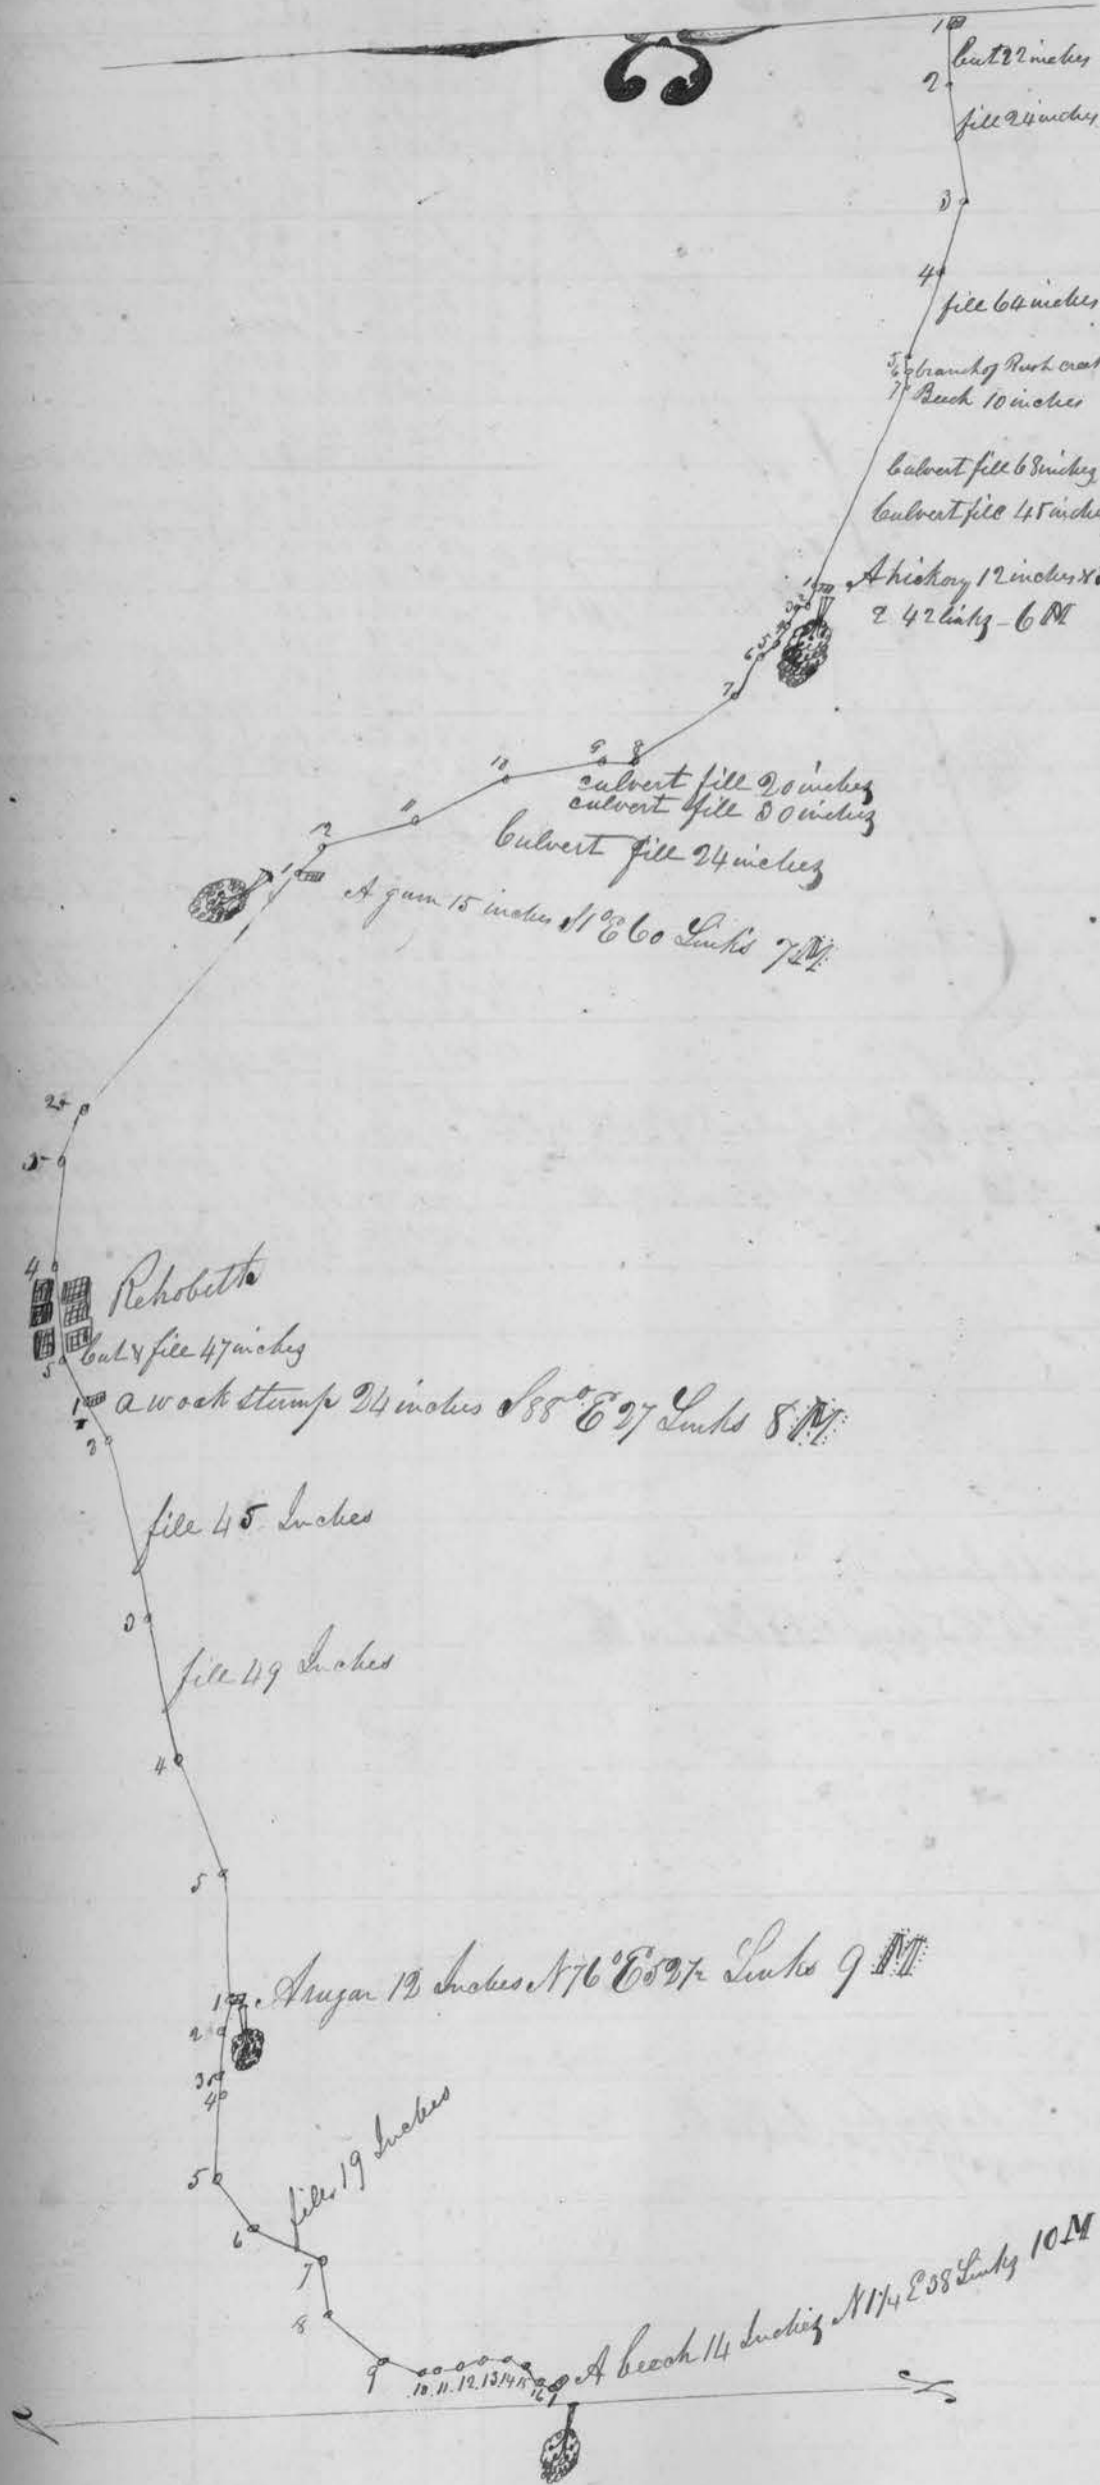 1
Cut 22 inches
2
fill 24 inches
3
4
fill 64 inches
5
6 branch of Rush creek
7 Beech 10 inches
Culvert fill 68 inches
Culvert fill 45 inche
1 A hickory 12 inches
2 42 links - 6 M
3
4
5
6
7
9 8
10
culvert fill 20 inches
culvert fill 30 inches
11
Culvert fill 24 inches
12
1
A gum 15 inches N1°E 60 Links 7M
2
3
4
Rehobeth
Cut & fill 47 inches
5
1 a w oak stump 24 inches S88°E 27 Links 8 M
2
fill 45 Inches
3
fill 49 Inches
4
5
1 A sugar 12 Inches N76°E 52½ Links 9 M
2
3
4
5
fill 19 Inches
6
7
8
9
10 11 12 13 14 15 16 1
A beech 14 Inches N1¼ E 38 Links 10 M